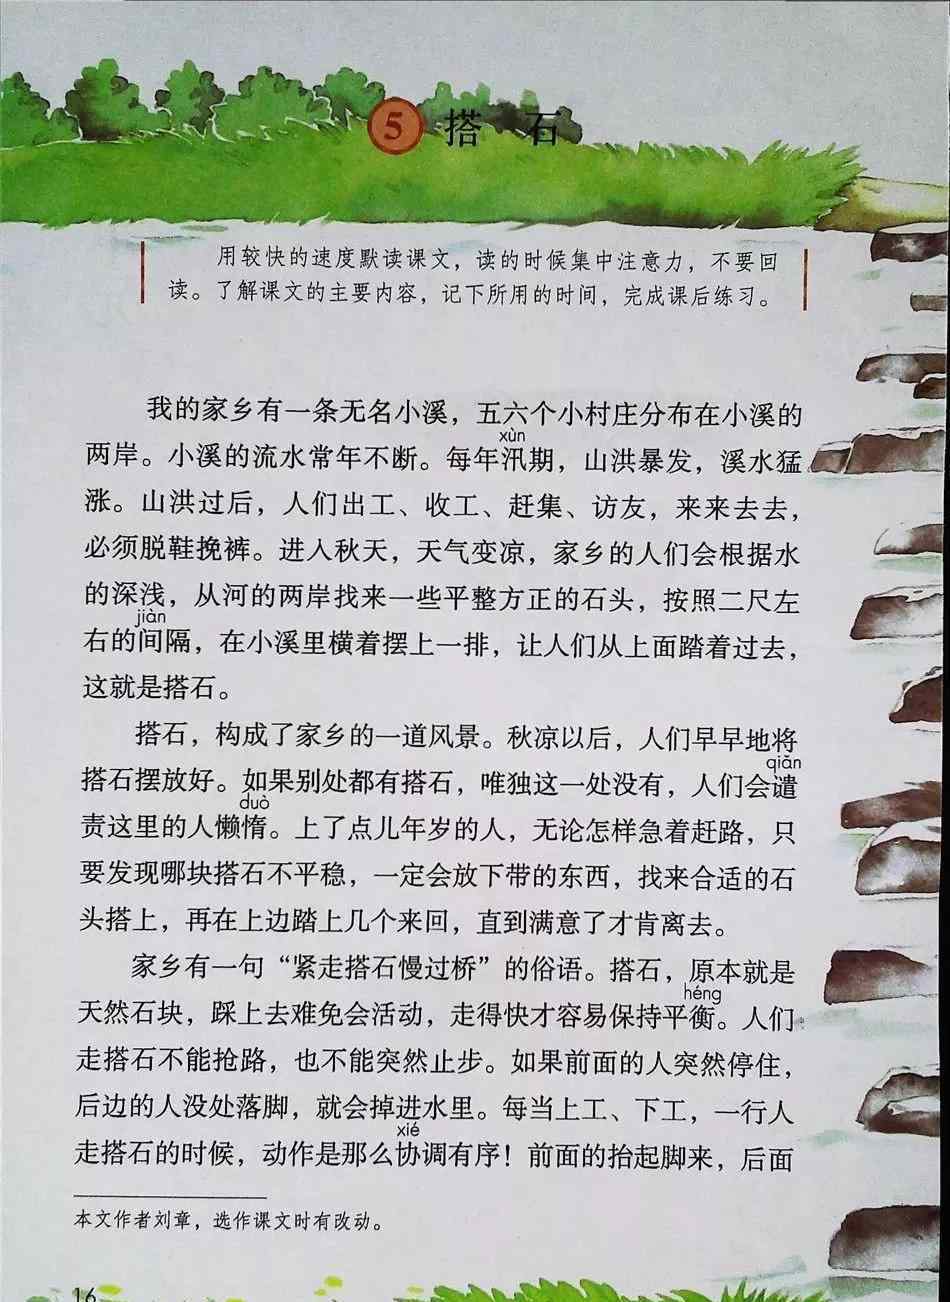 5 搭 石
用较快的速度默读课文，读的时候集中注意力，不要回
读。了解课文的主要内容，记下所用的时间，完成课后练习。
我的家乡有一条无名小溪，五六个小村庄分布在小溪的
xùn
两岸。小溪的流水常年不断。每年汛期，山洪暴发，溪水猛
涨。山洪过后，人们出工、收工、赶集、访友，来来去去，
必须脱鞋挽裤。进入秋天，天气变凉，家乡的人们会根据水
的深浅，从河的两岸找来一些平整方正的石头，按照二尺左
jiàn
右的间隔，在小溪里横着摆上一排，让人们从上面踏着过去，
这就是搭石。
搭石，构成了家乡的一道风景。秋凉以后，人们早早地将
qiǎn
搭石摆放好。如果别处都有搭石，唯独这一处没有，人们会谴
duò
责这里的人懒惰。上了点儿年岁的人，无论怎样急着赶路，只
要发现哪块搭石不平稳，一定会放下带的东西，找来合适的石
头搭上，再在上边踏上几个来回，直到满意了才肯离去。
家乡有一句“紧走搭石慢过桥”的俗语。搭石，原本就是
héng
天然石块，踩上去难免会活动，走得快才容易保持平衡。人们
走搭石不能抢路，也不能突然止步。如果前面的人突然停住，
后边的人没处落脚，就会掉进水里。每当上工、下工，一行人
xié
走搭石的时候，动作是那么协调有序！前面的抬起脚来，后面
本文作者刘章，选作课文时有改动。
16